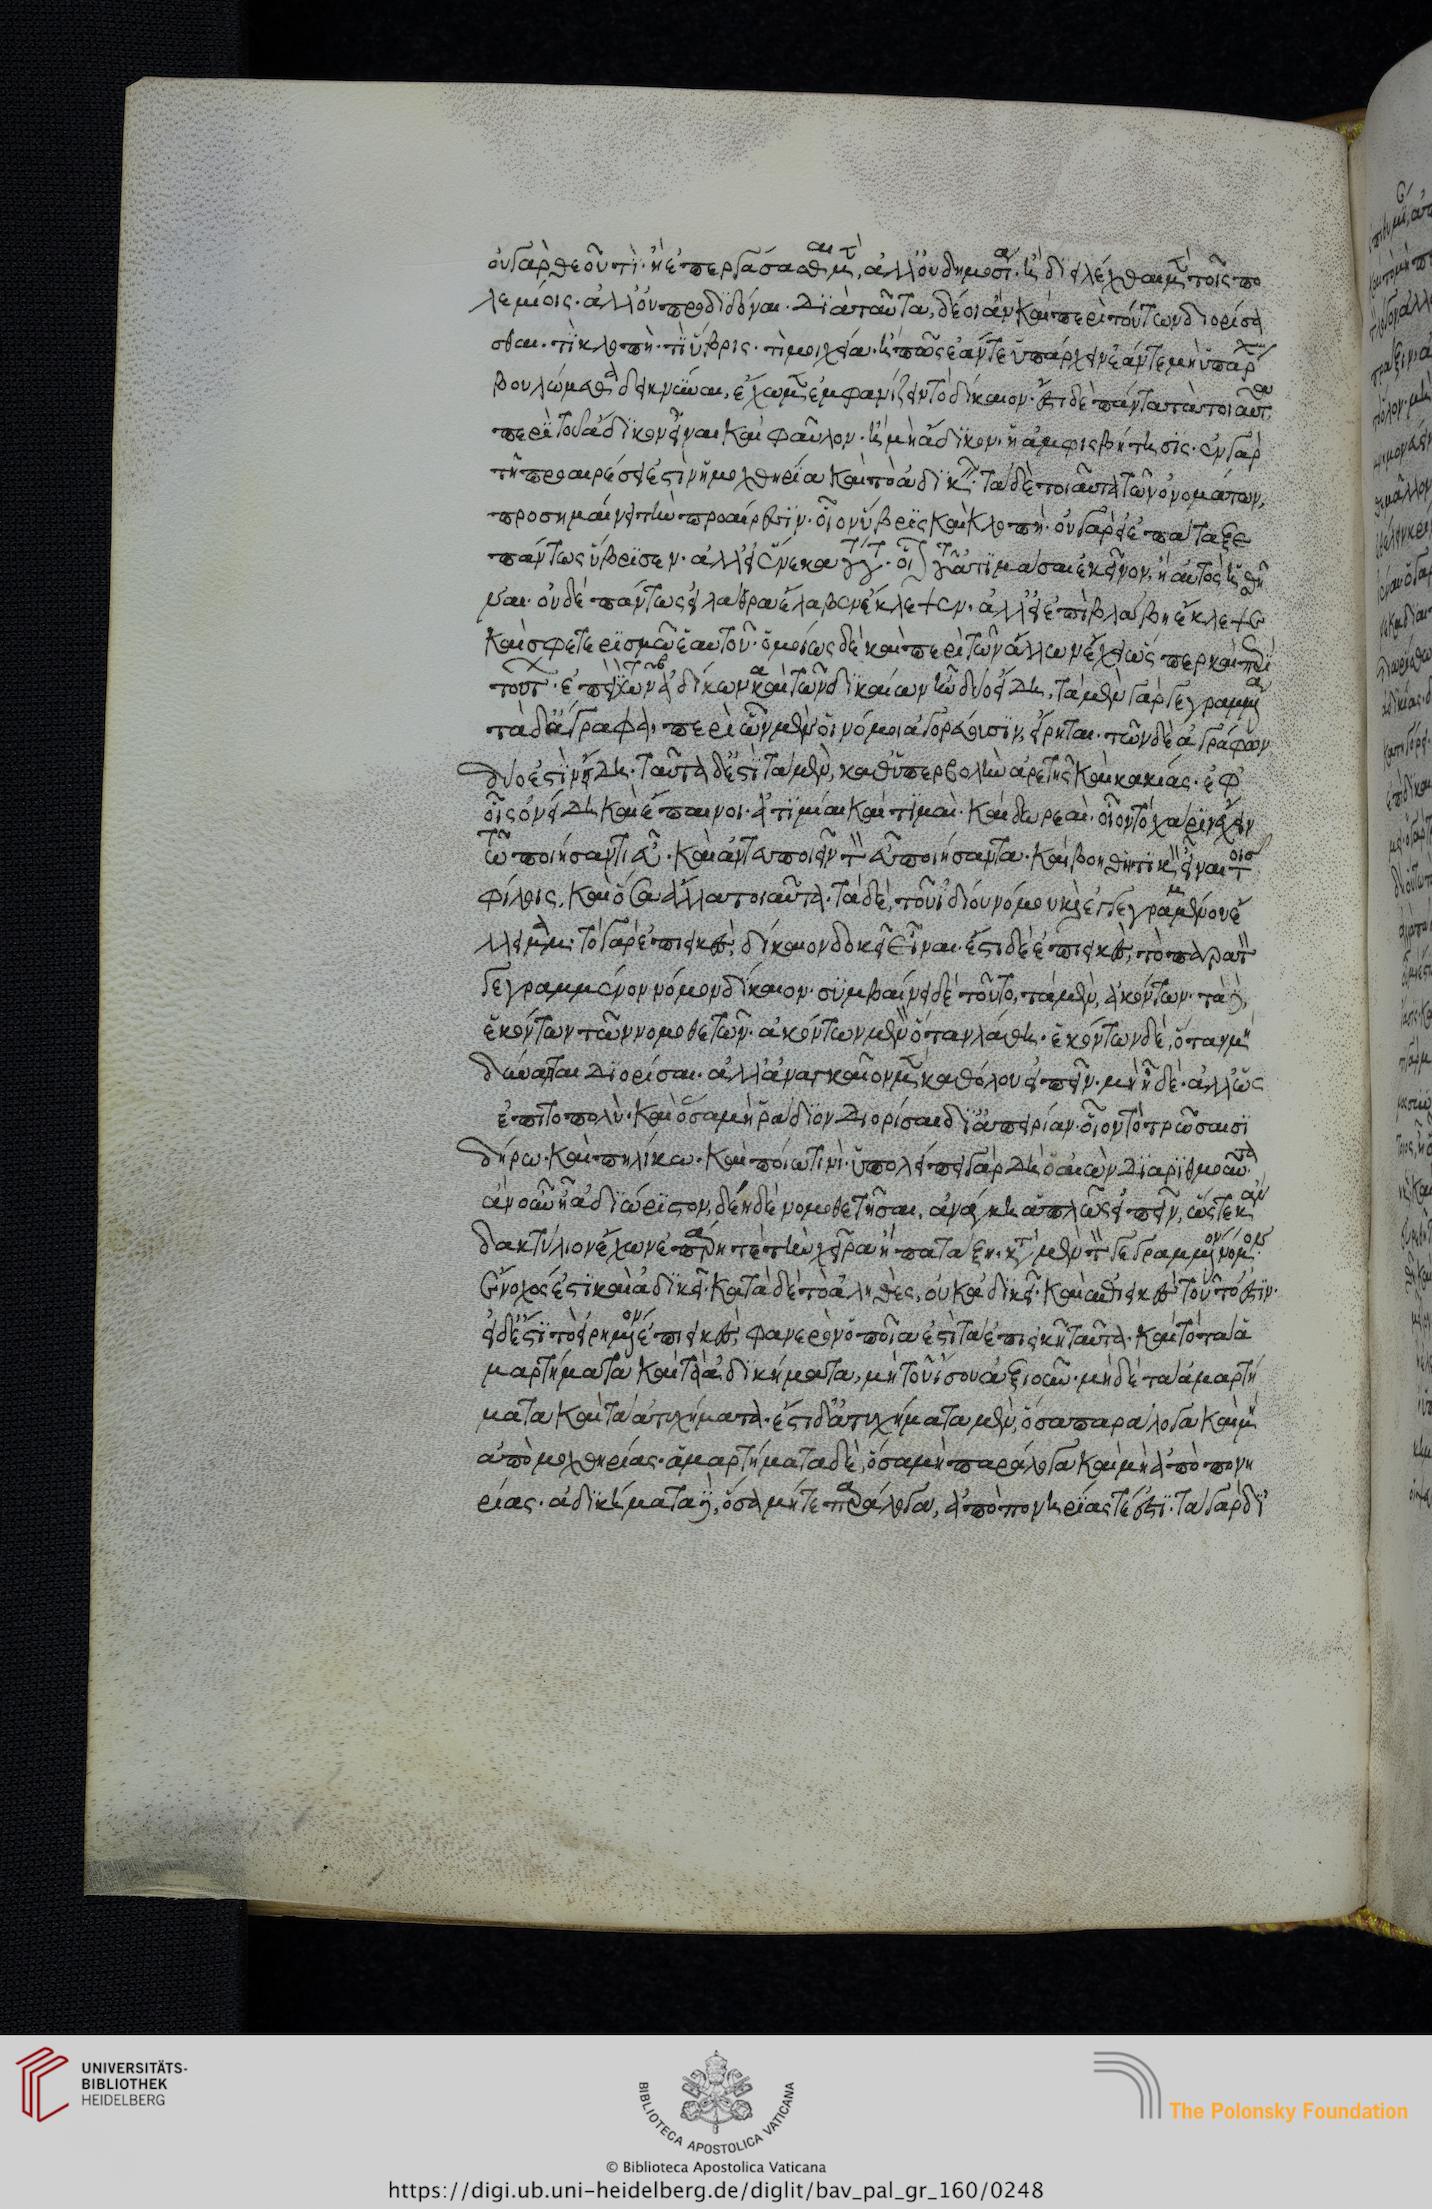 οὐ γὰρ θεοῦ τι· ἢ ἐπεργάσασθαι μὲν, ἀλλ' οὐ δημοσία· ἢ διειλέχθαι μὲν τοῖς πο
λεμίοις· ἀλλ' οὐ προδιδόναι. Διὰ ταῦτα, δέοι ἂν καὶ περὶ τούτων διορίσα
σθαι. τί κλοπή· τί ὕβρις· τί μοιχεία· ἢ πῶς ἐάν τε ὑπάρχειν ἐάν τε μὴ ὑπάρχειν
βουλώμεθα δεικνύναι, ἔχωμεν ἐμφανίζειν τὸ δίκαιον· ἔστι δὲ πάντα τὰ τοιαῦτα
περὶ τοῦ ἄδικον εἶναι καὶ φαῦλον· ἢ μὴ ἄδικον· ἡ ἀμφισβήτησις· ἐν γὰρ
τῇ προαιρέσει ἐστὶν ἡ μοχθηρία καὶ τὸ ἀδικεῖν· τὰ δὲ τοιαῦτα τῶν ὀνομάτων,
προσημαίνει τὴν προαίρεσιν· οἷον ὕβρις καὶ κλοπή· οὐ γὰρ εἰ ἐπάταξε
πάντως ὕβρισεν· ἀλλ' εἰ ἕνεκα ἀτιμάσαι ἐκεῖνον, ἢ αὐτὸς ἡσθῆ
ναι· οὐδὲ πάντως εἰ λάθρα ἔλαβεν ἔκλεψεν· ἀλλ' εἰ ἐπὶ βλάβῃ ἔκλεψε
καὶ σφετερισμῶ ἑαυτοῦ· ὁμοίως δὲ καὶ περὶ τῶν ἄλλων ἔχει ὥσπερ καὶ περὶ
τούτων· ἐπεὶ τῶν ἀδίκων καὶ τῶν δικαίων ἦν δύο εἴδη, τὰ μὲν γὰρ γεγραμμένα
τὰ δ' ἄγραφα, περὶ ὧν μὲν οἱ νόμοι ἀγορεύουσιν, εἴρηται· τῶν δὲ ἀγράφων
δύο ἐστὶν εἴδη· ταῦτα δ' ἐστὶ τὰ μὲν, καθ' ὑπερβολὴν ἀρετῆς καὶ κακίας· ἐφ'
οἷς ὀνείδη καὶ ἔπαινοι· ἀτιμίαι καὶ τιμαί· καὶ δωρεαί· οἷον τὸ χάριν ἔχειν
τῶ ποιήσαντι εὖ· καὶ ἀντευποιεῖν τὸν εὖ ποιήσαντα· καὶ βοηθητικὸν εἶναι τοῖς
φίλοις, καὶ ὅσα ἄλλα τοιαῦτα· τὰ δὲ, τοῦ ἰδίου νόμου καὶ γεγραμμένου ἔ
λλειμμα· τὸ γὰρ ἐπιεικὲς, δίκαιον δοκεῖ εἶναι· ἔστι δὲ ἐπιεικὲς, τὸ παρὰ τὸν
γεγραμμένον νόμον δίκαιον· συμβαίνει δὲ τοῦτο, τὰ μὲν, ἀκόντων· τὰ δὲ,
ἑκόντων τῶν νομοθετῶν· ἀκόντων μὲν ὅταν λάθῃ· ἑκόντων δὲ, ὅταν μὴ
δύναται διορίσαι· ἀλλ' ἀναγκαῖον μὲν καθόλου εἰπεῖν· μὴ ἦ δὲ· ἀλλ' ὡς
ἐπιτοπολύ· καὶ ὅσα μὴ ῥάδιον διορίσαι δι' ἀπειρίαν· οἷον τὸ τρῶσαι σι
δήρω· καὶ πηλίκω· καὶ ποίω τινί· ὑπολείπει γὰρ ἂν ὁ αἰὼν διαριθμοῦντα
ἂν οὖν ἦ ἀδιόριστον, δέη δὲ νομοθετῆσαι, ἀνάγκη ἁπλῶς εἰπεῖν, ὥστε κἂν
δακτύλιον ἔχων ἐπάρηται τὴν χεῖρα ἢ πατάξη· κατὰ μὲν τὸν γεγραμμένον νόμον
ἔνοχός ἐστι καὶ ἀδικεῖ· κατὰ δὲ τὸ ἀληθὲς, οὐκ ἀδικεῖ· καὶ τὸ ἐπιεικὲς τοῦτό ἐστιν·
εἰ δ' ἐστὶ τὸ εἰρημένον ἐπιεικὲς, φανερὸν ὁποῖα ἐστὶ τὰ ἐπιεικῆ ταῦτα· καὶ τὸ τὰ ἁ
μαρτήματα καὶ τὰ ἀδικήματα, μὴ τοῦ ἴσου ἀξιοῦν· μηδὲ τὰ ἁμαρτή
ματα καὶ τὰ ἀτυχήματα· ἔστι δ' ἀτυχήματα μὲν, ὅσα παράλογα καὶ μὴ
ἀπὸ μοχθηρίας· ἁμαρτήματα δὲ, ὅσα μὴ παράλογα καὶ μὴ ἀπὸ πονη
ρίας· ἀδικήματα δὲ, ὅσα μήτε παράλογα, ἀπὸ πονηρίας τέ ἐστι· τὰ γὰρ δι'
UNIVERSITÄTS-
BIBLIOTHEK
HEIDELBERG
BIBLIOTECA APOSTOLICA VATICANA
© Biblioteca Apostolica Vaticana
The Polonsky Foundation
https://digi.ub.uni-heidelberg.de/diglit/bav_pal_gr_160/0248